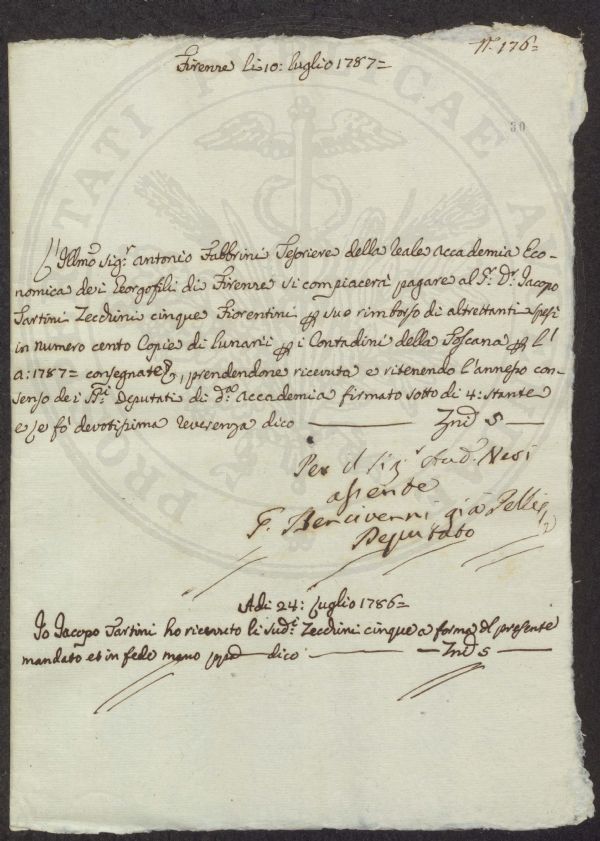 N.° 176=
Firenze li 10: luglio 1787=
30
Illmo Sig.r Antonio Fabbrini Tesoriere della Reale Accademia Eco-
nomica dei Georgofili di Firenze si compiacerà pagare al Sr. Dr. Jacopo
Tartini Zecchini cinque Fiorentini p suo rimborso di altrettanti spesi
in numero cento Copie di Lunarii p i Contadini della Toscana p l'
a: 1787= consegnateci, prendendone ricevuta e ritenendo l'annesso con-
senso dei SS.ri Deputati di d.a Accademia firmato sotto di 4: stante
e le fò devotissima reverenza dico ——— Znd 5 —
Per il Sig.r Aud.r Nesi
assente
G. Bencivenni già Pelli
Deputato
Adi 24: Luglio 1786=
Io Jacopo Tartini ho ricevuto li sud.i Zecchini cinque a forma del presente
mandato et in fede mano ppa dico ——— Znd 5 —
PROSPERITATI PUBLICAE AU